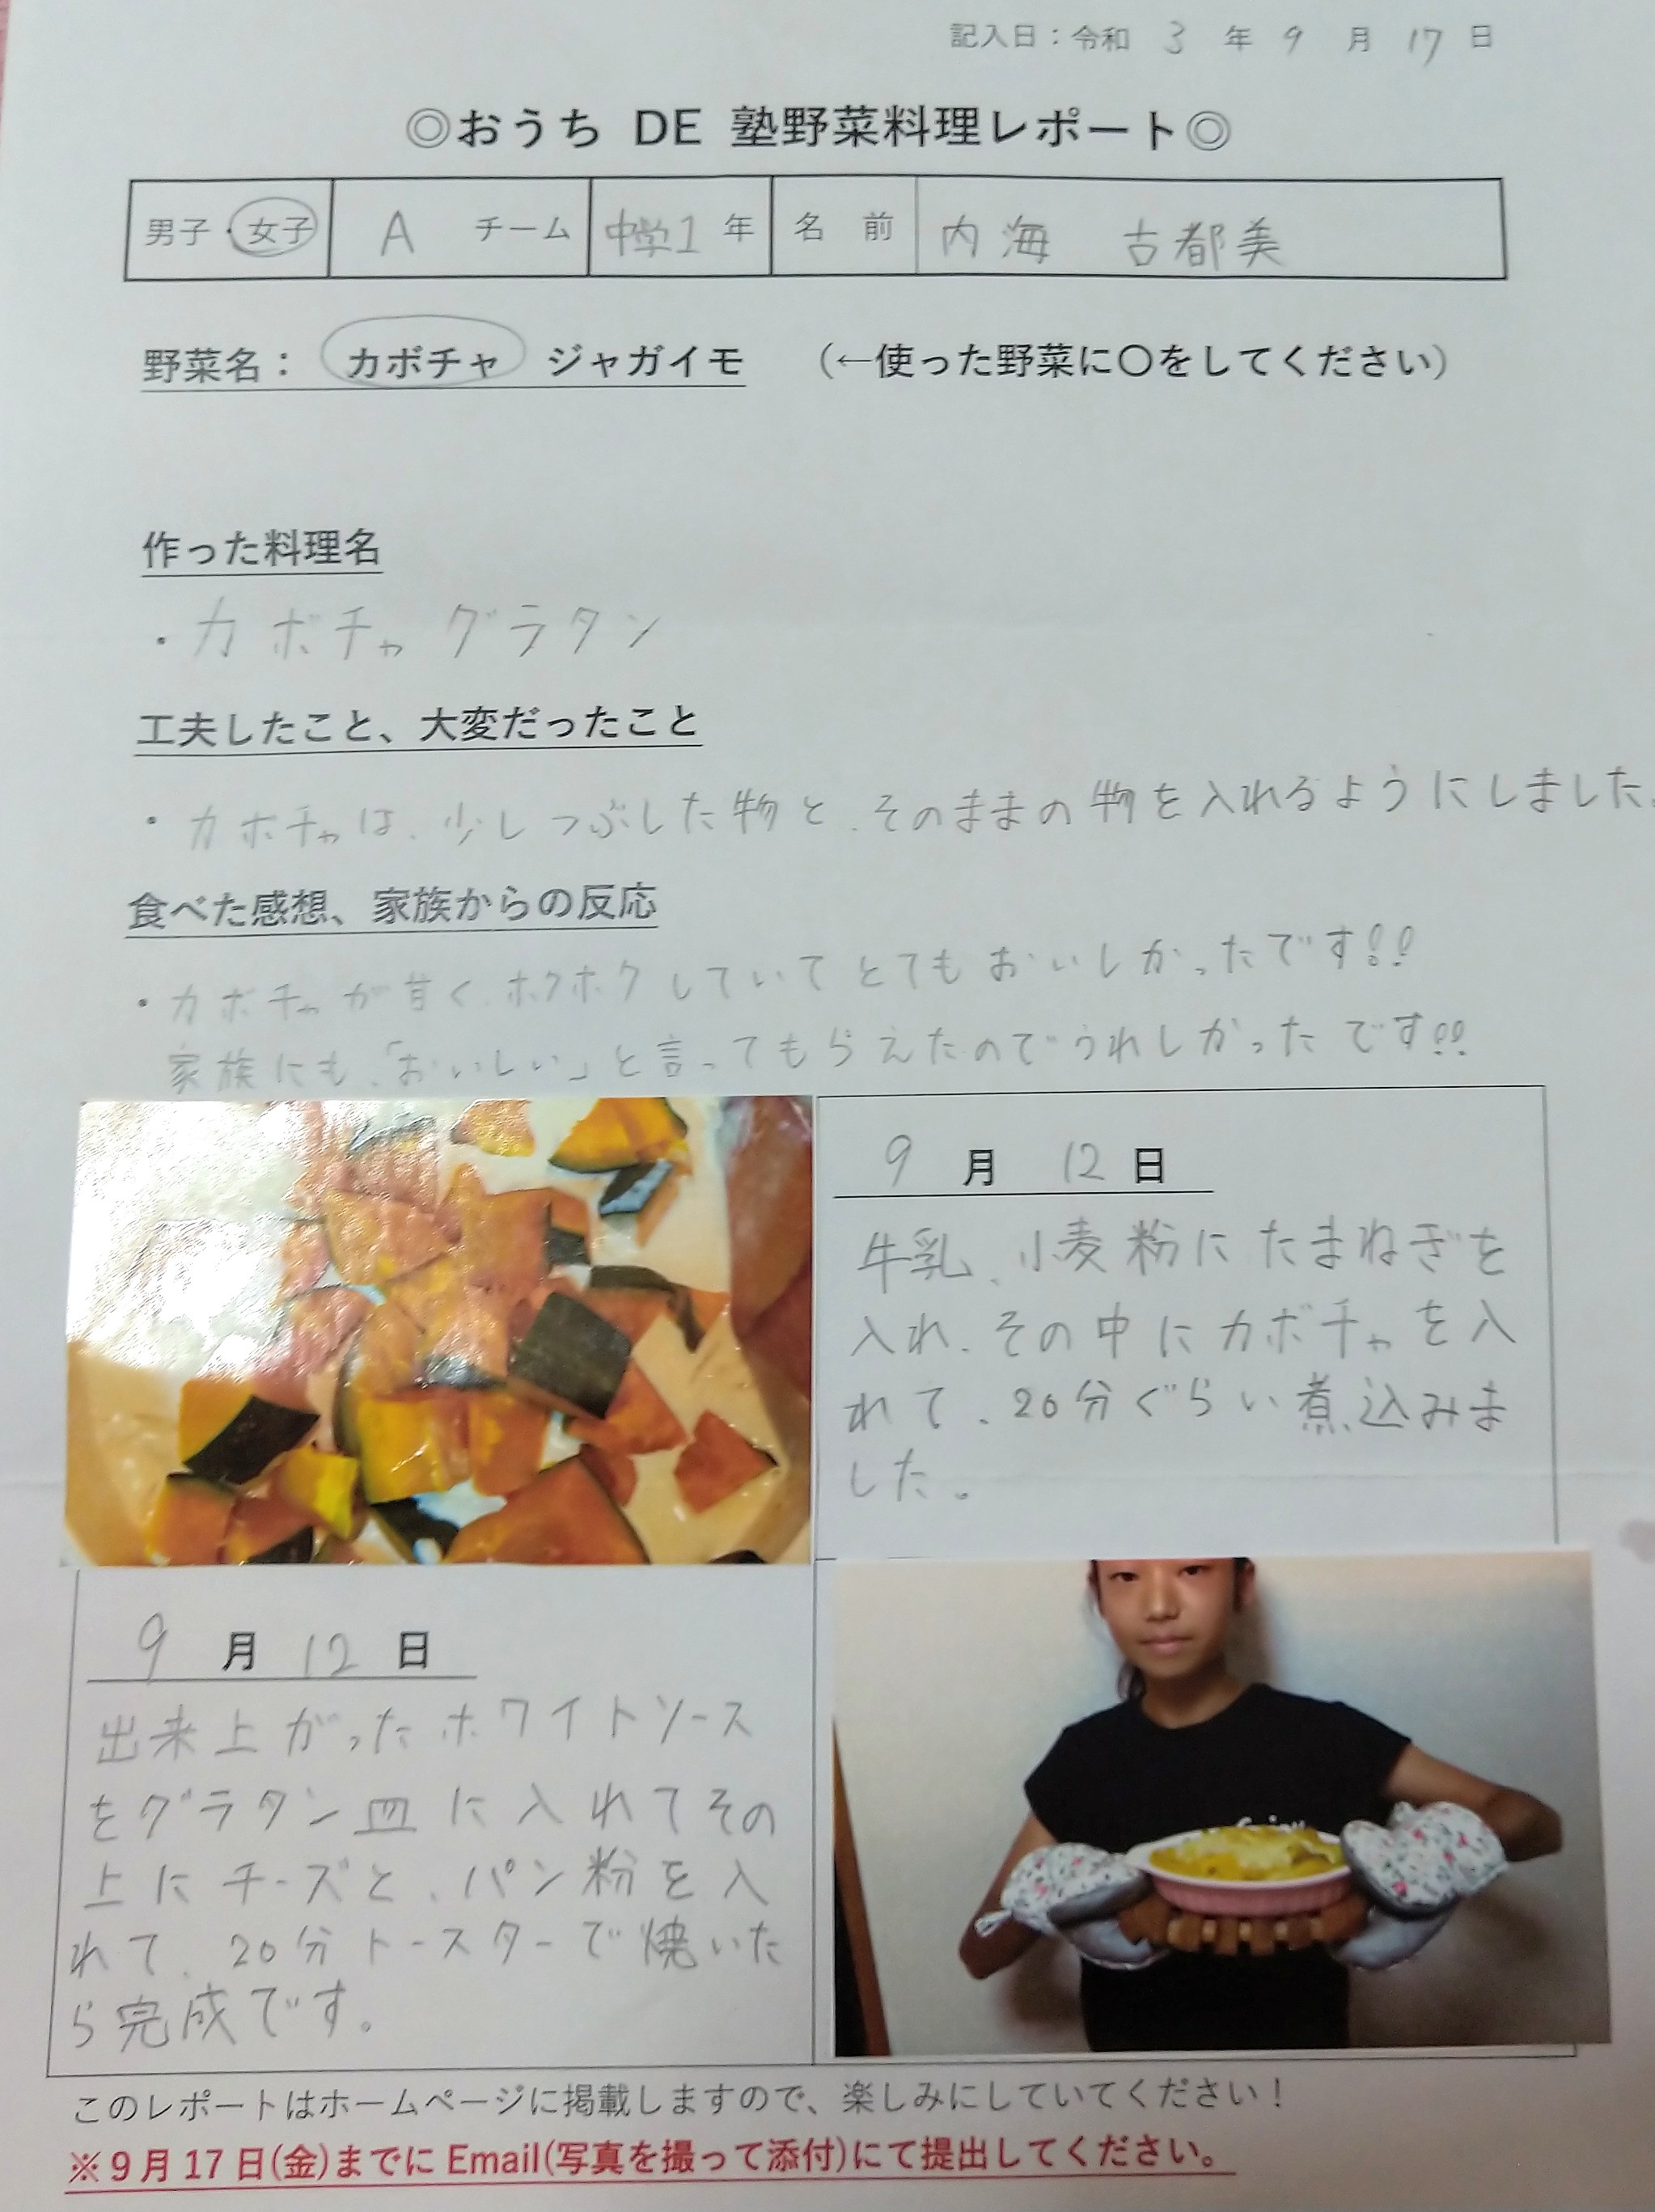 記入日：令和 3 年 9 月 17 日
◎おうち DE 塾野菜料理レポート◎
男子・女子 A チーム 中学1 年 名 前 内海 古都美
野菜名： カボチャ ジャガイモ （←使った野菜に〇をしてください）
作った料理名
・カボチャグラタン
工夫したこと、大変だったこと
・カボチャは、少しつぶした物と、そのままの物を入れるようにしました。
食べた感想、家族からの反応
・カボチャが甘く、ホクホクしていてとてもおいしかったです!!
家族にも、「おいしい」と言ってもらえたのでうれしかったです!!
9 月 12 日
牛乳、小麦粉にたまねぎを
入れ、その中にカボチャを入
れて、20分ぐらい煮込みま
した。
9 月 12 日
出来上がったホワイトソース
をグラタン皿に入れてその
上にチーズと、パン粉を入
れて、20分トースターで焼いた
ら完成です。
このレポートはホームページに掲載しますので、楽しみにしていてください！
※9月17日(金)までにEmail(写真を撮って添付)にて提出してください。